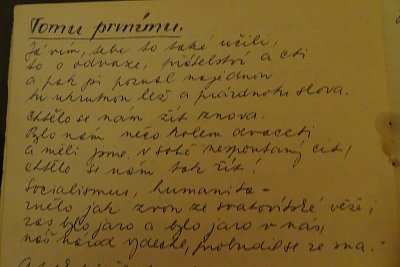 Tomu prvnímu.
Já vím, tebe to také učili,
to o odvaze, přátelství a cti
a pak jsi poznal najednou
tu ukrutnou lež a prázdnotu slova.
Chtělo se nám žít znova.
Bylo nám něco kolem dvaceti
a měli jsme v sobě nespoutaný cit,
chtělo se nám tak žít!
Socialismus, humanita –
znělo jak zvon ze svatovítské věže;
ras bylo jaro a bylo jaro v nás,
náš národ vydechl, probudil se ze sna.